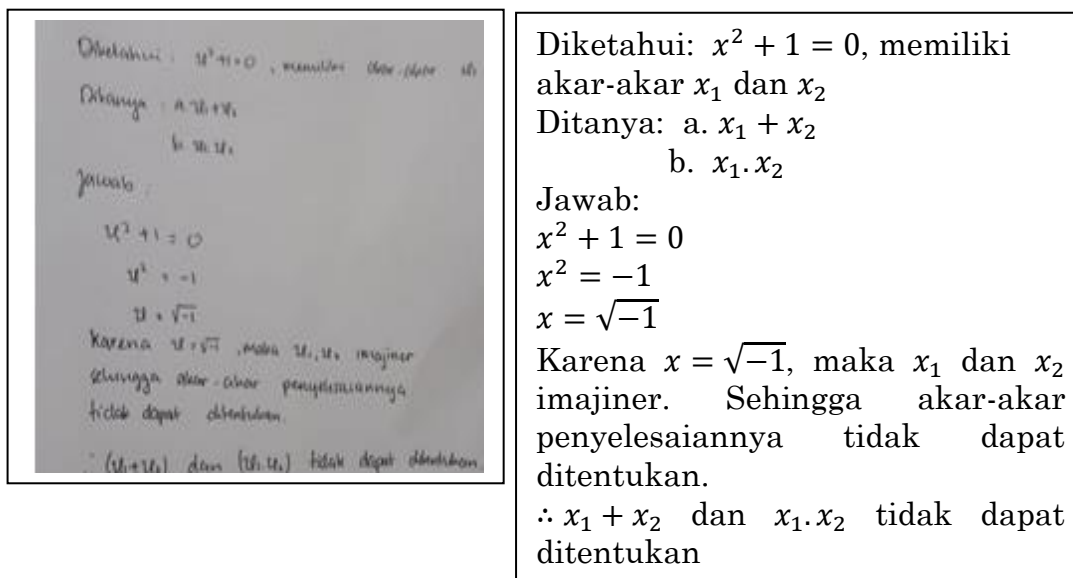 Diketahui : x² + 1 = 0 , memiliki akar-akar x₁
Ditanya : a. x₁ + x₂
b. x₁ . x₂
Jawab :
x² + 1 = 0
x² = -1
x = √-1
Karena x = √-1 , maka x₁, x₂ imajiner
sehingga akar-akar penyelesaiannya
tidak dapat ditentukan.
∴ (x₁+x₂) dan (x₁.x₂) tidak dapat ditentukan
Diketahui: x² + 1 = 0, memiliki
akar-akar x₁ dan x₂
Ditanya: a. x₁ + x₂
b. x₁. x₂
Jawab:
x² + 1 = 0
x² = −1
x = √−1
Karena x = √−1, maka x₁ dan x₂
imajiner. Sehingga akar-akar
penyelesaiannya tidak dapat
ditentukan.
∴ x₁ + x₂ dan x₁. x₂ tidak dapat
ditentukan